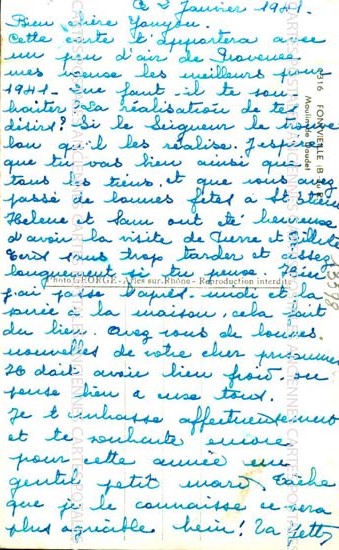 Ce 2 Janvier 1941.
Bien chère Youyou.
Cette carte t'apportera avec
un peu d'air de Provence
mes voeux les meilleurs pour
1941. Que faut-il te sou
haiter la réalisation de tes
désirs? Si le Seigneur le trouve
bon qu'il les réalise. J'espère
que tu vas bien ainsi que
tous les tiens, et que vous avez
passé de bonnes fêtes à St Etienne
Hélène et Sam ont été heureux
d'avoir la visite de Pierre et
Ecris sans trop tarder et assez
longuement si tu peux. Hier
j'ai passé l'après-midi et la
soirée à la maison, cela fait
du bien. Avez vous de bonnes
nouvelles de votre cher prisonnier
Il doit avoir bien froid, on
pense bien à eux tous.
Je t'embrasse affectueusement
et te souhaite encore
pour cette année un
gentil petit mari. Tâche
que je le connaisse ce sera
plus agréable hein! Ta
Photo GEORGE - Arles sur Rhône - Reproduction interdite
316 FONTVIEILLE (B. du R.)
Moulin de Daudet
CARTES POSTALES ANCIENNES